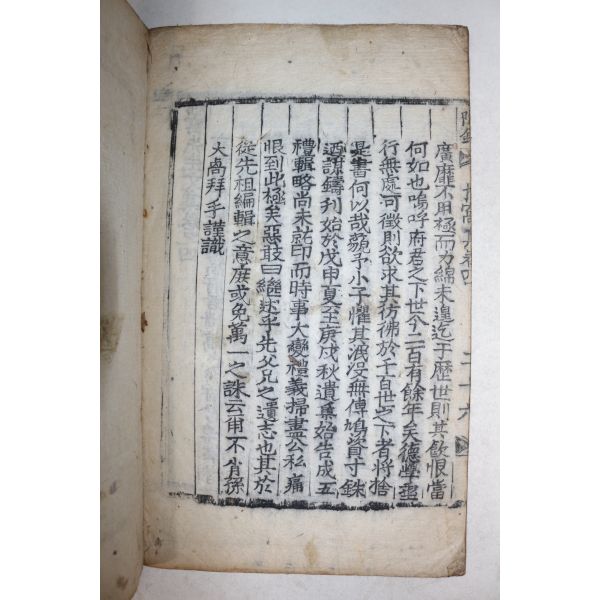 廣靡不用極而力綿未遑迄于歷世則其飮恨當
何如也嗚呼府君之下世今二百有餘年矣德學
行無處可徵則欲求其彷彿於千百世之下者將捨
是書何以哉藐予小子懼其泯沒無傳鳩資寸銖
迺謀鑄刊始於戊申夏至庚戌秋遺集始告成五
禮輯略尚未訖印而時事大變禮義掃盡公私痛
眼到此極矣惡敢曰繼述乎先父兄之遺志也其於
從先祖編輯之意庶或免萬一之誅云甭不肖孫
大卨拜手謹識
附錄
卷四
二十六